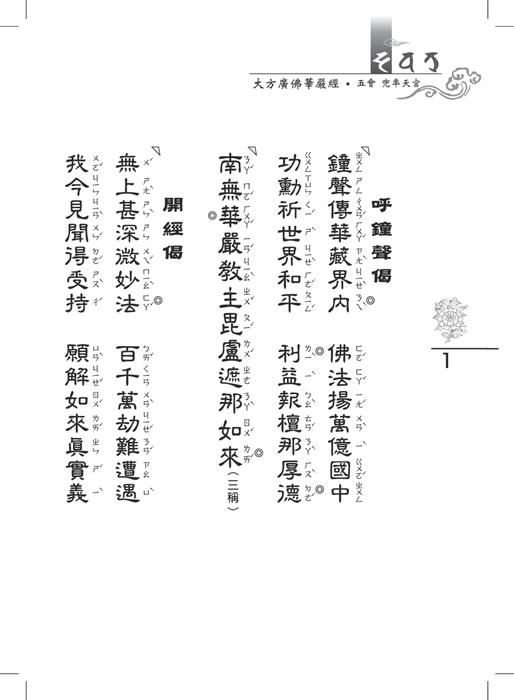 大方廣佛華嚴經 • 五會 兜率天宮
呼鐘聲偈
鐘聲傳華藏界內◎ 佛法揚萬億國中
功勳祈世界和平◎ 利益報檀那厚德◎
南無◎華嚴教主毘盧遮那如來◎(三稱)
開經偈
無上甚深微妙法◎ 百千萬劫難遭遇
我今見聞得受持 願解如來真實義
1